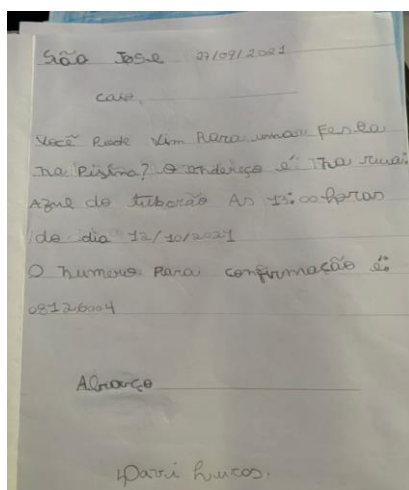 São José 07/09/2021
Caio,
Você Pode vim Para uma Festa
na Pisina? O endereço é na rua:
Azul do tubarão As 13:00 horas
do dia 12/10/2021
O numero Para confirmação é:
08126004
Abraço
Davi Lucas.